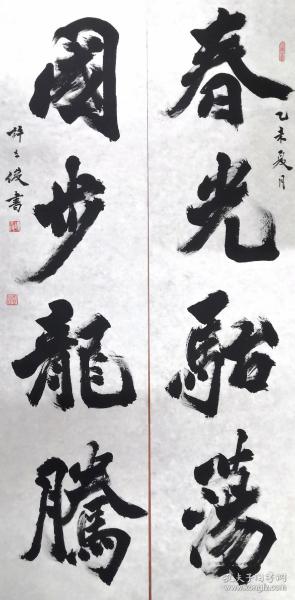 春光駘蕩
乙未夏月
國步龍騰
許之俊書
孔夫子旧书网